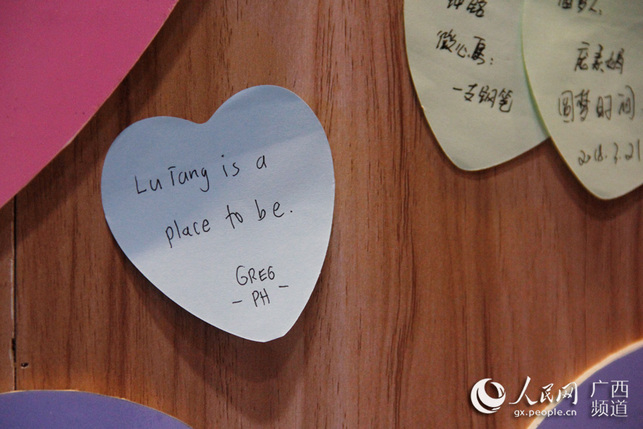 Lu Tang is a
place to be.
GREG
- PH -
微心愿:
一支钢笔
圆梦时间
2018.3.21
人民网
gx.people.cn
广西
频道